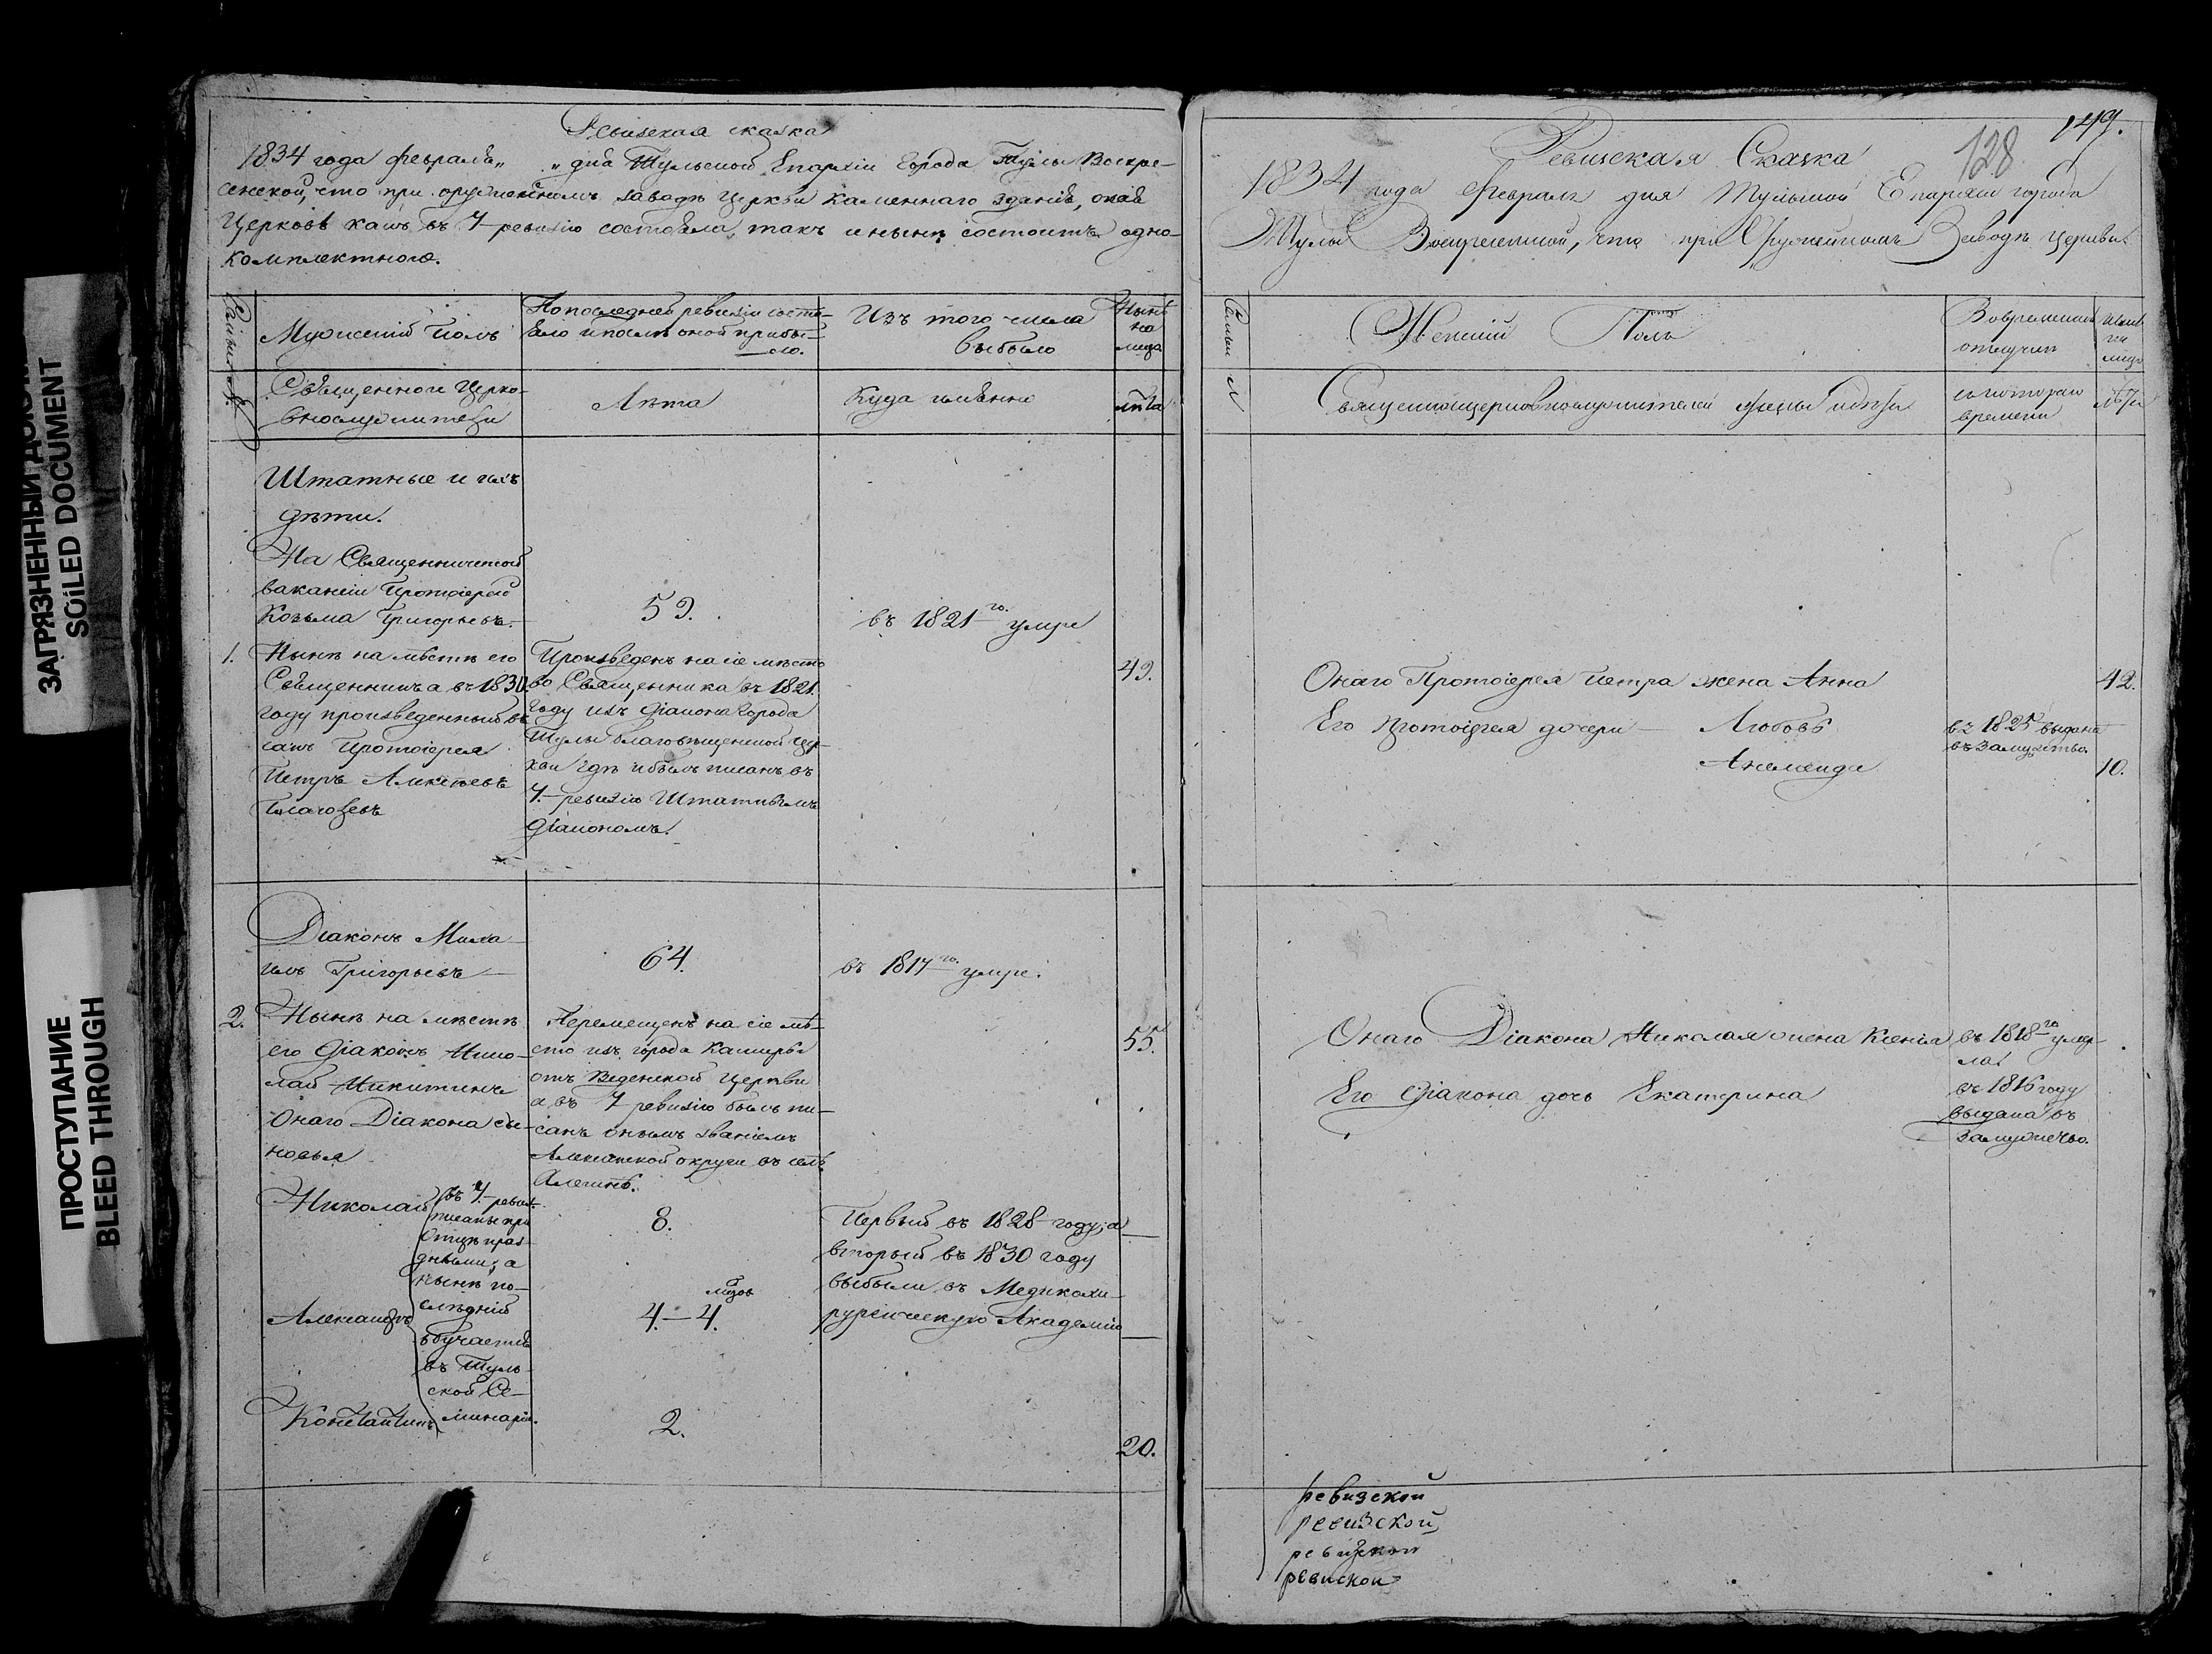 ЗАГРЯЗНЕННЫЙ ДОКУМЕНТ
SOILED DOCUMENT
ПРОСТУПАНИЕ
BLEED THROUGH
Ревизская сказка
1834 года февраля „ „ дня Тульской Епархіи города Тулы Воскре-
сенской, что при оружейномъ заводѣ церкви каменнаго зданія, оная
Церковь какъ въ 7 ревизію состояла, такъ и нынѣ состоитъ одно-
комплектною.
Мужескій полъ
По последней ревизіи состо-
яло и послѣ оной прибы-
ло.
Изъ того числа
выбыло
Нынѣ
на
лицо
Священно и Церко-
внослужители
Лѣта
Куда именно
лѣта
Штатные и ихъ
дѣти.
На Священнической
вакансіи Протоіерей
Козьма Григорьевъ.
59.
въ 1821го умре
1.
Нынѣ на мѣстѣ его
Священника въ 1830
году произведенный въ
санъ Протоіерея
Петръ Алексѣевъ
Произведенъ на сіе мѣсто
во Священника въ 1821
году изъ діакона города
Тулы благовѣщенской цер-
кви гдѣ и былъ писанъ въ
7. ревизію Штатнымъ
діакономъ.
49.
Діаконъ Миха-
илъ Григорьевъ
64.
въ 1817го умре.
2.
Нынѣ на мѣстѣ
его діаконъ Нико-
лай Никитинъ
Онаго Діакона сы-
новья
Перемещенъ на сіе мѣ-
сто изъ города Каширы
отъ Веденской Церкви
а въ 7 ревизію былъ пи-
санъ онымъ званіемъ
Алексинской округи въ селѣ
55.
Николай
въ 7. ревиз.
писаны при
Отцѣ праз-
дными; а
нынѣ по-
слѣдній
обучается
въ Туль-
ской Се-
минаріи.
8.
Первый въ 1828 году; а
вторый въ 1830 году
выбыли въ Медикохи-
рургическую Академію
Александръ
4.—4.
Константинъ
2.
20.
149.
128
Ревизская Сказка
1834 года февраля дня Тульской Епархіи города
Тулы Воскресенской, что при Оружейномъ Заводѣ церкви.
Семьи №
Женскій Полъ
Во временной
отлучкѣ
Нынѣ
на
лицо
Священноцерковнослужителей жены и дѣти
съ котораго
времени
лѣта
Онаго Протоіерея Петра жена Анна
42.
Его протоіерея дочери — Любовь
въ 1825 выдана
въ замужство
10.
Онаго Діакона Николая жена Ксенія
въ 1818го умер-
ла
Его Діакона дочь Екатерина
въ 1816 году
выдана въ
замужство.
ревизской
ревизской
ревизской
ревиской